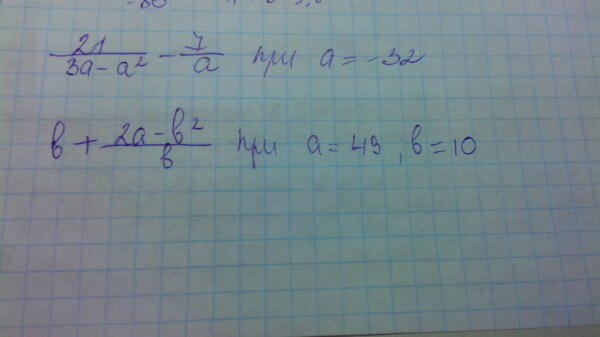 21/(3a-a²) - 7/a при a=-32
b + (2a-b²)/b при a=49, b=10